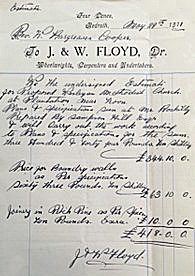 Estimate
Four Lanes,
Redruth, May 1911
Rev. W. Cooper
To J. & W. FLOYD, Dr.
Wheelwrights, Carpenters and Undertakers.
We the undersigned Estimate
for Proposed Wesleyan Methodist Church
at Plantation near Noon
Plans & Specification seen at Mr
Prepared By Sampson Hill Esqr
will Carry out the work according
to Plans & Specification for The Sum
three Hundred & forty four Pounds Ten Shillings
£344.10.0
Price for Boundry walls
as Per Specification
Sixty three Pounds Ten Shillings
£63.10.0
Joinery in Pitch Pine as Per
Ten Pounds. Extra. £10.0.0
£418.0.0
J & W Floyd.